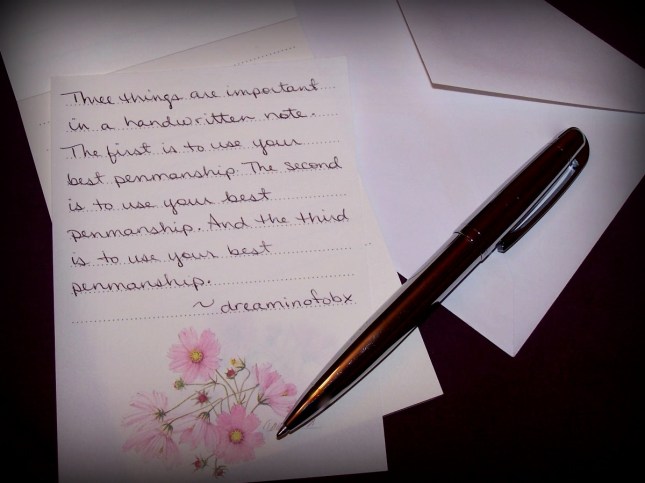 Three things are important
in a handwritten note.
The first is to use your
best penmanship. The second
is to use your best
penmanship. And the third
is to use your best
penmanship.
~ dreaminofobx